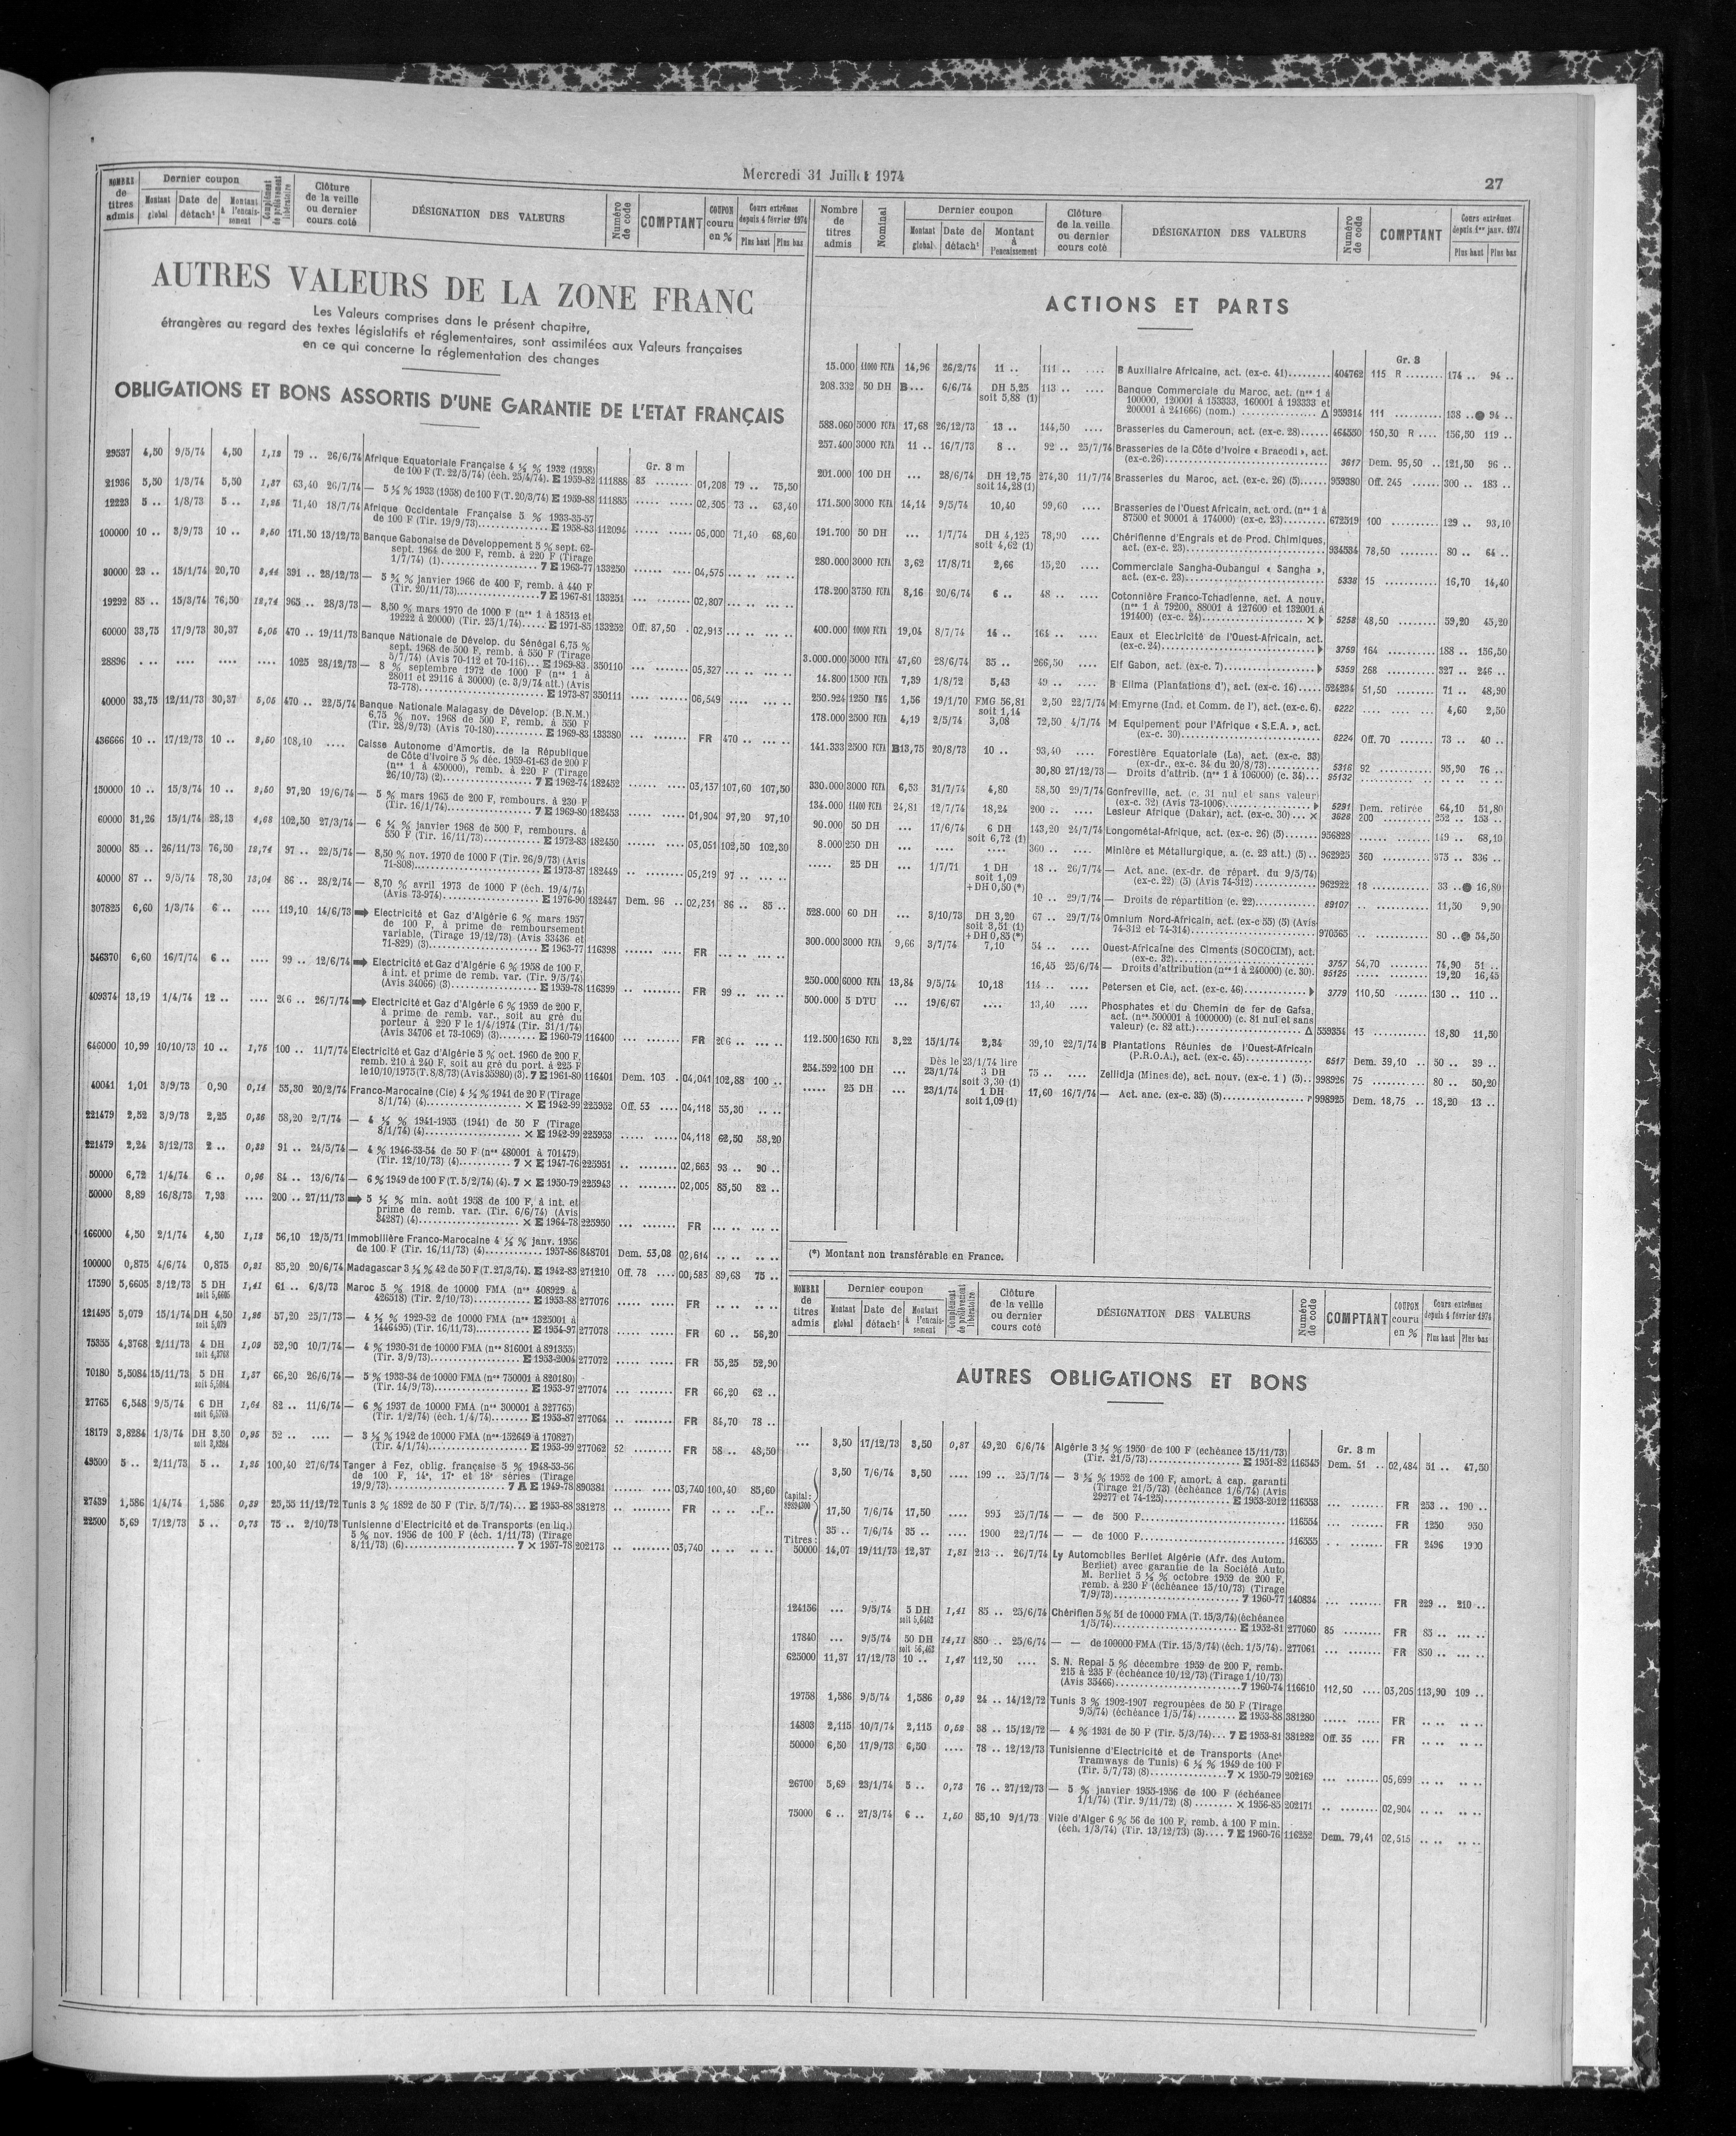 Mercredi 31 Juillet 1974
27
NOMBRE de titres admis
Dernier coupon
Montant global
Date de détacht
Montant à l'encaissement
Complément de prélèvement libératoire
Clôture de la veille ou dernier cours coté
DÉSIGNATION DES VALEURS
Numéro de code
COMPTANT
COUPON couru en %
Cours extrêmes depuis 4 février 1974
Plus haut
Plus bas
AUTRES VALEURS DE LA ZONE FRANC
Les Valeurs comprises dans le présent chapitre,
étrangères au regard des textes législatifs et réglementaires, sont assimilées aux Valeurs françaises
en ce qui concerne la réglementation des changes
OBLIGATIONS ET BONS ASSORTIS D'UNE GARANTIE DE L'ETAT FRANÇAIS
Gr. 3 m
29537 4,50 9/5/74 4,50 1,12 79 .. 26/6/74 Afrique Equatoriale Française 4 ½ % 1932 (1958)
de 100 F (T. 22/5/74) (éch. 25/4/74). E 1959-82 111888 83 ........ 01,208 79 .. 75,50
21936 5,50 1/3/74 5,50 1,37 63,40 26/7/74 — 5 ½ % 1933 (1958) de 100 F (T. 20/3/74) E 1959-88 111885 ..... ..... 02,305 73 .. 63,40
12223 5 .. 1/8/73 5 .. 1,25 71,40 18/7/74 Afrique Occidentale Française 5 % 1933-35-57
de 100 F (Tir. 19/9/73).............. E 1958-83 112094 ..... ..... 05,000 71,40 68,60
100000 10 .. 3/9/73 10 .. 2,50 171,50 13/12/73 Banque Gabonaise de Développement 5 % sept. 62-
sept. 1964 de 200 F, remb. à 220 F (Tirage
1/7/74) (1).................... 7 E 1963-77 133250 ...... .... 04,575 ... .. ... ..
30000 23 .. 15/1/74 20,70 3,44 391 .. 28/12/73 — 5 ¾ % janvier 1966 de 400 F, remb. à 440 F
(Tir. 20/11/73)................. 7 E 1967-81 133251 ... ....... 02,807 ... .. ... ..
19292 85 .. 15/3/74 76,50 12,74 965 .. 28/3/73 — 8,50 % mars 1970 de 1000 F (nos 1 à 18513 et
19222 à 20000) (Tir. 25/1/74)..... E 1971-85 133252 Off. 87,50 . 02,913 ... .. ... ..
60000 33,75 17/9/73 30,37 5,05 470 .. 19/11/73 Banque Nationale de Dévelop. du Sénégal 6,75 %
sept. 1968 de 500 F, remb. à 550 F (Tirage
5/7/74) (Avis 70-112 et 70-116)... E 1969-83 350110 ... ....... 05,327 ... .. ... ..
28896 . .. .... .... .... 1025 28/12/73 — 8 % septembre 1972 de 1000 F (nos 1 à
28011 et 29116 à 30000) (c. 3/9/74 att.) (Avis
73-778)......................... E 1973-87 350111 .... ...... 06,549 ... .. ... ..
40000 33,75 12/11/73 30,37 5,05 470 .. 22/5/74 Banque Nationale Malagasy de Dévelop. (B.N.M.)
6,75 % nov. 1968 de 500 F, remb. à 550 F
(Tir. 28/9/73) (Avis 70-180).......... E 1969-83 133380 ... ....... FR 470 .. ... ..
436666 10 .. 17/12/73 10 .. 2,50 108,10 .... Caisse Autonome d'Amortis. de la République
de Côte d'Ivoire 5 % déc. 1959-61-63 de 200 F
(nos 1 à 450000), remb. à 220 F (Tirage
26/10/73) (2).................. 7 E 1962-74 182452 ...... .... 03,137 107,60 107,50
150000 10 .. 15/3/74 10 .. 2,50 97,20 19/6/74 — 5 % mars 1965 de 200 F, rembours. à 230 F
(Tir. 16/1/74).................. 7 E 1969-80 182453 ..... ..... 01,904 97,20 97,10
60000 31,26 15/1/74 28,13 4,68 102,50 27/3/74 — 6 ¼ % janvier 1968 de 500 F, rembours. à
550 F (Tir. 16/11/73).............. E 1972-83 182450 ...... .... 03,051 102,50 102,30
30000 85 .. 26/11/73 76,50 12,74 97 .. 22/5/74 — 8,50 % nov. 1970 de 1000 F (Tir. 26/9/73) (Avis
71-808)......................... E 1973-87 182449 .. ........ 05,219 97 .. ... ..
40000 87 .. 9/5/74 78,30 13,04 86 .. 28/2/74 — 8,70 % avril 1973 de 1000 F (éch. 19/4/74)
(Avis 73-974)................... E 1976-90 182447 Dem. 96 .. 02,231 86 .. 85 ..
307825 6,60 1/3/74 6 .. .... 119,10 14/6/73 ➡ Electricité et Gaz d'Algérie 6 % mars 1957
de 100 F, à prime de remboursement
variable, (Tirage 19/12/73) (Avis 33436 et
71-829) (3)..................... E 1963-77 116398 ...... .... FR ... .. ... ..
546370 6,60 16/7/74 6 .. .... 99 .. 12/6/74 ➡ Electricité et Gaz d'Algérie 6 % 1958 de 100 F,
à int. et prime de remb. var. (Tir. 9/5/74)
(Avis 34066) (3)................. E 1959-78 116399 .. ........ FR 99 .. ... ..
409374 13,19 1/4/74 12 .. .... 206 .. 26/7/74 ➡ Electricité et Gaz d'Algérie 6 % 1959 de 200 F,
à prime de remb. var., soit au gré du
porteur à 220 F le 1/4/1974 (Tir. 31/1/74)
(Avis 34706 et 73-1069) (3)....... E 1960-79 116400 ... ....... FR 206 .. ... ..
646000 10,99 10/10/73 10 .. 1,75 100 .. 11/7/74 Electricité et Gaz d'Algérie 5 % oct. 1960 de 200 F,
remb. 210 à 240 F, soit au gré du port. à 225 F
le 10/10/1975 (T. 8/8/73) (Avis 35980) (3). 7 E 1961-80 116401 Dem. 103 . 04,041 102,88 100 ..
40041 1,01 3/9/73 0,90 0,14 55,30 20/2/74 Franco-Marocaine (Cie) 4 ½ % 1941 de 20 F (Tirage
8/1/74) (4)..................... × E 1942-99 225952 Off. 53 .... 04,118 55,30 .. ..
221479 2,52 3/9/73 2,25 0,36 58,20 2/7/74 — 4 ½ % 1941-1955 (1941) de 50 F (Tirage
8/1/74) (4)..................... × E 1942-99 225953 ..... ..... 04,118 62,50 58,20
221479 2,24 3/12/73 2 .. 0,32 91 .. 24/5/74 — 4 % 1946-53-54 de 50 F (nos 480001 à 701479)
(Tir. 12/10/73) (4)........... 7 × E 1947-76 225951 .. ........ 02,663 93 .. 90 ..
50000 6,72 1/4/74 6 .. 0,96 84 .. 13/6/74 — 6 % 1949 de 100 F (T. 5/2/74) (4). 7 × E 1950-79 225943 .. ........ 02,005 85,50 82 ..
50000 8,89 16/8/73 7,93 .... 200 .. 27/11/73 ➡ 5 ½ % min. août 1958 de 100 F, à int. et
prime de remb. var. (Tir. 6/6/74) (Avis
34287) (4)..................... × E 1964-78 225950 ... ....... FR ... .. ... ..
166000 4,50 2/1/74 4,50 1,12 56,10 12/5/71 Immobilière Franco-Marocaine 4 ½ % janv. 1956
de 100 F (Tir. 16/11/73) (4)............ 1957-86 848701 Dem. 53,08 02,614 .. .. .. ..
100000 0,875 4/6/74 0,875 0,21 85,20 20/6/74 Madagascar 3 ½ % 42 de 50 F (T. 27/3/74). E 1942-83 271210 Off. 78 .... 00,583 89,68 75 ..
17590 5,6605 3/12/73 5 DH soit 5,6605 1,41 61 .. 6/3/73 Maroc 5 % 1918 de 10000 FMA (nos 408929 à
426518) (Tir. 2/10/73)........... E 1953-88 277076 ..... ..... FR .. .. .. ..
121495 5,079 15/1/74 DH 4,50 soit 5,079 1,26 57,20 25/7/73 — 4 ½ % 1929-32 de 10000 FMA (nos 1325001 à
1446495) (Tir. 16/11/73)........... E 1954-97 277078 ..... ..... FR 60 .. 56,20
75355 4,3768 2/11/73 4 DH soit 4,3768 1,09 52,90 10/7/74 — 4 % 1930-31 de 10000 FMA (nos 816001 à 891355)
(Tir. 3/9/73)................... E 1953-2004 277072 ..... ..... FR 55,25 52,90
70180 5,5084 15/11/73 5 DH soit 5,5084 1,37 66,20 26/6/74 — 5 % 1933-34 de 10000 FMA (nos 750001 à 820180)
(Tir. 14/9/73)................... E 1953-97 277074 ... ....... FR 66,20 62 ..
27765 6,548 9/5/74 6 DH 1,64 82 .. 11/6/74 — 6 % 1937 de 10000 FMA (nos 300001 à 327765)
(Tir. 1/2/74) (éch. 1/4/74)........ E 1953-87 277064 .. ........ FR 84,70 78 ..
18179 3,8284 1/3/74 DH 3,50 soit 3,8284 0,95 52 .. .... — 3 ½ % 1942 de 10000 FMA (nos 152649 à 170827)
(Tir. 4/1/74).................... E 1953-99 277062 52 ........ FR 58 .. 48,50
49500 5 .. 2/11/73 5 .. 1,25 100,40 27/6/74 Tanger à Fez, oblig. française 5 % 1948-53-56
de 100 F, 14e, 17e et 18e séries (Tirage
19/9/73)...................... 7 A E 1949-78 890381 ...... .... 03,740 100,40 85,60
27439 1,586 1/4/74 1,586 0,39 25,55 11/12/72 Tunis 3 % 1892 de 50 F (Tir. 5/7/74)... E 1953-88 381278 .. ........ FR .. .. .. ..
22500 5,69 7/12/73 5 .. 0,73 75 .. 2/10/73 Tunisienne d'Electricité et de Transports (en liq.)
5 % nov. 1956 de 100 F (éch. 1/11/73) (Tirage
8/11/73) (6)....................... 7 × 1957-78 202173 .. ........ 03,740 .. .. .. ..
Nombre de titres admis
Nominal
Dernier coupon
Montant global
Date de détacht
Montant à l'encaissement
Clôture de la veille ou dernier cours coté
DÉSIGNATION DES VALEURS
Numéro de code
COMPTANT
Cours extrêmes depuis 1er janv. 1974
Plus haut
Plus bas
ACTIONS ET PARTS
Gr. 3
15.000 11000 FCFA 14,96 26/2/74 11 .. 111 .. .... B Auxiliaire Africaine, act. (ex-c. 41)......... 404762 115 R ........ 174 .. 94 ..
208.332 50 DH B... 6/6/74 DH 5,25 soit 5,88 (1) 113 .. .... Banque Commerciale du Maroc, act. (nos 1 à
100000, 120001 à 153333, 160001 à 193333 et
200001 à 241666) (nom.) ................ Δ 959314 111 .......... 138 .. ● 94 ..
588.060 5000 FCFA 17,68 26/12/73 13 .. 144,50 .... Brasseries du Cameroun, act. (ex-c. 28)...... 464550 150,30 R .... 156,50 119 ..
257.400 3000 FCFA 11 .. 16/7/73 8 .. 92 .. 25/7/74 Brasseries de la Côte d'Ivoire « Bracodi », act.
(ex-c.26)................................ 3617 Dem. 95,50 .. 121,50 96 ..
201.000 100 DH ... 28/6/74 DH 12,75 soit 14,28 (1) 274,30 11/7/74 Brasseries du Maroc, act. (ex-c. 26) (5)...... 959380 Off. 245 ...... 300 .. 183 ..
171.500 3000 FCFA 14,14 9/5/74 10,40 99,60 .... Brasseries de l'Ouest Africain, act. ord. (nos 1 à
87500 et 90001 à 174000) (ex-c. 23)......... 672519 100 .......... 129 .. 93,10
191.700 50 DH ... 1/7/74 DH 4,125 soit 4,62 (1) 78,90 .... Chérifienne d'Engrais et de Prod. Chimiques,
act. (ex-c. 23)............................. 934534 78,50 ........ 80 .. 64 ..
280.000 3000 FCFA 3,62 17/8/71 2,66 15,20 .... Commerciale Sangha-Oubangui « Sangha »,
act. (ex-c. 23)............................. 5338 15 ........... 16,70 14,40
178.200 3750 FCFA 8,16 20/6/74 6 .. 48 .. .... Cotonnière Franco-Tchadienne, act. A nouv.
(nos 1 à 79200, 88001 à 127600 et 132001 à
191400) (ex-c. 24)..................... × ▶ 5258 48,50 ........ 59,20 45,20
400.000 10000 FCFA 19,04 8/7/74 14 .. 164 .. .... Eaux et Electricité de l'Ouest-Africain, act.
(ex-c. 24)............................... ▶ 3759 164 .......... 188 .. 156,50
3.000.000 5000 FCFA 47,60 28/6/74 35 .. 266,50 .... Elf Gabon, act. (ex-c. 7)................... ▶ 5359 268 .......... 327 .. 246 ..
14.800 1500 FCFA 7,39 1/8/72 5,43 49 .. .... B Elima (Plantations d'), act. (ex-c. 16)..... 524234 51,50 ........ 71 .. 48,90
250.924 1250 FMG 1,56 19/1/70 FMG 56,81 soit 1,14 2,50 22/7/74 M Emyrne (Ind. et Comm. de l'), act. (ex-c. 6). 6222 .... .... .... 4,60 2,50
178.000 2500 FCFA 4,19 2/5/74 3,08 72,50 4/7/74 M Equipement pour l'Afrique « S.E.A. », act.
(ex-c. 30)................................ 6224 Off. 70 ....... 73 .. 40 ..
141.333 2500 FCFA B13,75 20/8/73 10 .. 93,40 .... Forestière Equatoriale (La), act. (ex-c. 33)
(ex-dr., ex-c. 34 du 20/8/73)............ 5316 92 ........... 95,90 76 ..
30,80 27/12/73 — Droits d'attrib. (nos 1 à 106000) (c. 34)... 95132 .. ........... .. .. .. ..
330.000 3000 FCFA 6,53 31/7/74 4,80 58,50 29/7/74 Gonfreville, act. (c. 31 nul et sans valeur)
(ex-c. 32) (Avis 73-1006)................. ▶ 5291 Dem. retirée 64,10 51,80
134.000 11400 FCFA 24,81 12/7/74 18,24 200 .. .... Lesieur Afrique (Dakar), act. (ex-c. 30)... × 3628 200 .......... 252 .. 153 ..
90.000 50 DH ... 17/6/74 6 DH soit 6,72 (1) 143,20 24/7/74 Longométal-Afrique, act. (ex-c. 26) (5)...... 956828 ..... ....... 149 .. 68,10
8.000 250 DH ... .... .... 360 .. .... Minière et Métallurgique, a. (c. 23 att.) (5).. 962925 360 .......... 375 .. 336 ..
..... 25 DH ... 1/7/71 1 DH soit 1,09 + DH 0,50 (*) 18 .. 26/7/74 — Act. anc. (ex-dr. de répart. du 9/5/74)
(ex-c. 22) (5) (Avis 74-312)............ 962922 18 ........... 33 .. ● 16,80
10 .. 29/7/74 — Droits de répartition (c. 22).......... 89107 .. ........... 11,50 9,90
528.000 60 DH ... 3/10/73 DH 3,20 soit 3,51 (1) + DH 0,85 (*) 67 .. 29/7/74 Omnium Nord-Africain, act. (ex-c 55) (5) (Avis
74-312 et 74-314)......................... 970565 .. .......... 80 .. ● 54,50
300.000 3000 FCFA 9,66 3/7/74 7,10 54 .. .... Ouest-Africaine des Ciments (SOCOCIM), act.
(ex-c. 32)................................ 3757 54,70 ........ 74,90 51 ..
16,45 25/6/74 — Droits d'attribution (nos 1 à 240000) (c. 30). 95125 ..... ....... 19,20 16,45
250.000 6000 FCFA 13,84 9/5/74 10,18 114 .. .... Petersen et Cie, act. (ex-c. 46)............. ▶ 3779 110,50 ....... 130 .. 110 ..
500.000 5 DTU ... 19/6/67 .... 13,40 .... Phosphates et du Chemin de fer de Gafsa,
act. (nos 500001 à 1000000) (c. 81 nul et sans
valeur) (c. 82 att.)...................... Δ 559354 13 ........... 18,80 11,50
112.500 1650 FCFA 3,22 15/1/74 2,34 39,10 22/7/74 B Plantations Réunies de l'Ouest-Africain
(P.R.O.A.), act. (ex-c. 45).............. 6517 Dem. 39,10 .. 50 .. 39 ..
Dès le 23/1/74 lire
254.592 100 DH ... 23/1/74 3 DH soit 3,30 (1) 75 .. .... Zellidja (Mines de), act. nouv. (ex-c. 1 ) (5).. 998926 75 ........... 80 .. 50,20
..... 25 DH ... 23/1/74 1 DH soit 1,09 (1) 17,60 16/7/74 — Act. anc. (ex-c. 35) (5).................. r 998925 Dem. 18,75 .. 18,20 13 ..
(*) Montant non transférable en France.
NOMBRE de titres admis
Dernier coupon
Montant global
Date de détacht
Montant à l'encaissement
Complément de prélèvement libératoire
Clôture de la veille ou dernier cours coté
DÉSIGNATION DES VALEURS
Numéro de code
COMPTANT
COUPON couru en %
Cours extrêmes depuis 4 février 1974
Plus haut
Plus bas
AUTRES OBLIGATIONS ET BONS
Gr. 3 m
... 3,50 17/12/73 3,50 0,87 49,20 6/6/74 Algérie 3 ½ % 1950 de 100 F (echéance 15/11/73)
(Tir. 21/5/73).................... E 1951-82 116545 Dem. 51 .. 02,484 51 .. 47,50
Capital :
3,50 7/6/74 3,50 .... 199 .. 25/7/74 — 3 ½ % 1952 de 100 F, amort. à cap. garanti
(Tirage 21/5/73) (échéance 1/6/74) (Avis
29277 et 74-125).............. E 1953-2012 116553 ... ....... FR 253 .. 190 ..
17,50 7/6/74 17,50 .... 995 25/7/74 — — de 500 F............................. 116554 ... ....... FR 1250 950
35 .. 7/6/74 35 .. .... 1900 22/7/74 — — de 1000 F............................ 116555 .. ....... FR 2496 1900
Titres :
50000 14,07 19/11/73 12,37 1,81 213 .. 26/7/74 Ly Automobiles Berliet Algérie (Afr. des Autom.
Berliet) avec garantie de la Société Auto
M. Berliet 5 ½ % octobre 1959 de 200 F,
remb. à 230 F (échéance 15/10/73) (Tirage
7/9/73)........................... 7 1960-77 140834 ... ....... FR 229 .. 210 ..
124156 ... 9/5/74 5 DH soit 5,6462 1,41 85 .. 25/6/74 Chérifien 5 % 51 de 10000 FMA (T. 15/3/74) (échéance
1/5/74)........................... E 1952-81 277060 85 ........ FR 85 .. ... ..
17840 ... 9/5/74 50 DH soit 56,463 14,11 850 .. 25/6/74 — — de 100000 FMA (Tir. 15/3/74) (éch. 1/5/74). 277061 ... ....... FR 850 .. ... ..
625000 11,37 17/12/73 10 .. 1,47 112,50 .... S. N. Repal 5 % décembre 1959 de 200 F, remb.
215 à 235 F (échéance 10/12/73) (Tirage 1/10/73)
(Avis 35466)......................... 7 1960-74 116610 112,50 .... 03,205 113,90 109 ..
19758 1,586 9/5/74 1,586 0,39 24 .. 14/12/72 Tunis 3 % 1902-1907 regroupées de 50 F (Tirage
9/5/74) (échéance 1/5/74)........ E 1953-88 381280 ..... ..... FR .. .. .. ..
14803 2,115 10/7/74 2,115 0,52 38 .. 15/12/72 — 4 % 1931 de 50 F (Tir. 5/3/74)... 7 E 1953-81 381282 Off. 35 .... FR .. .. .. ..
50000 6,50 17/9/73 6,50 .... 78 .. 12/12/73 Tunisienne d'Electricité et de Transports (Anct
Tramways de Tunis) 6 ½ % 1949 de 100 F
(Tir. 5/7/73) (8)................ 7 × 1950-79 202169 ... ....... 05,699 .. .. .. ..
26700 5,69 23/1/74 5 .. 0,73 76 .. 27/12/73 — 5 % janvier 1955-1956 de 100 F (échéance
1/1/74) (Tir. 9/11/72) (8) ........ × 1956-85 202171 .. ........ 02,904 .. .. .. ..
75000 6 .. 27/3/74 6 .. 1,50 85,10 9/1/73 Ville d'Alger 6 % 56 de 100 F, remb. à 100 F min.
(éch. 1/3/74) (Tir. 13/12/73) (3).... 7 E 1960-76 116252 Dem. 79,41 02,515 .. .. .. ..